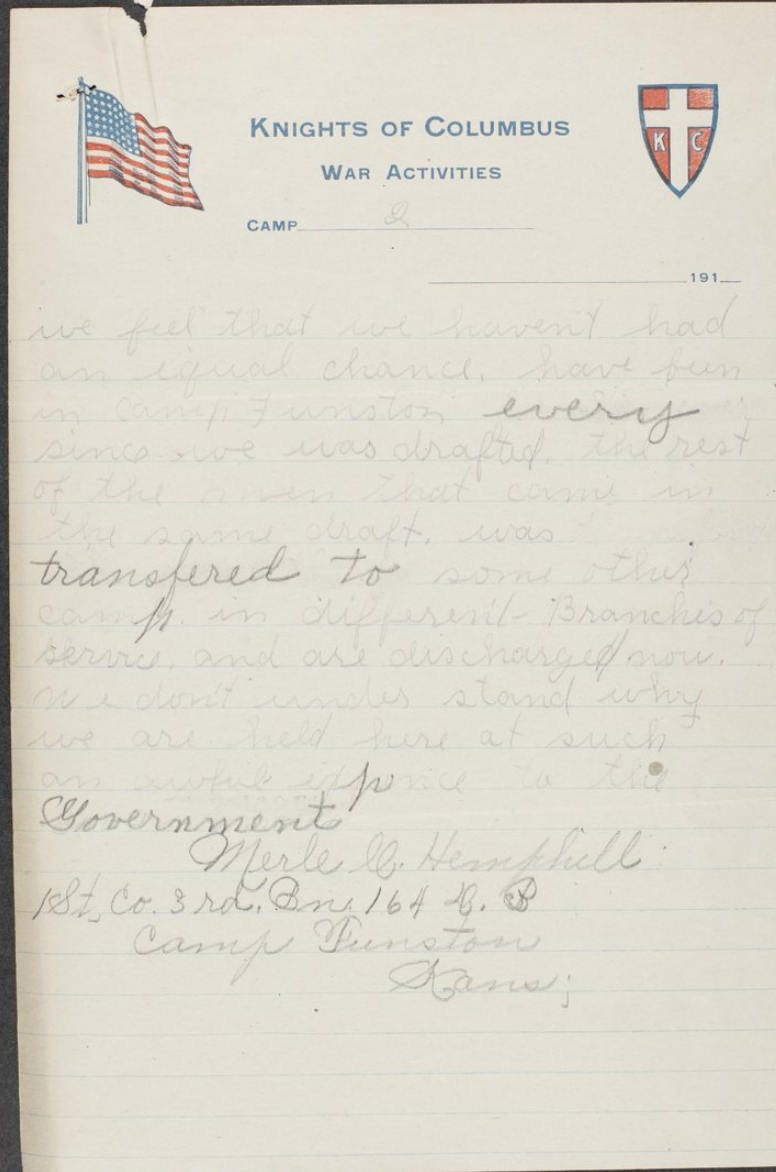 KNIGHTS OF COLUMBUS
WAR ACTIVITIES
K C
CAMP 2
191
we feel that we haven't had
an equal chance. have been
in Camp Funston every
since we was drafted. the rest
of the men that came in
the same draft. was
transfered to some other
camp. in different Branches of
service. and are discharged now.
We don't under stand why
we are held here at such
an awful expence to the
Government
Merle C. Hemphill
1St, Co. 3rd. Bn. 164 D. B
Camp Funston
Kans;